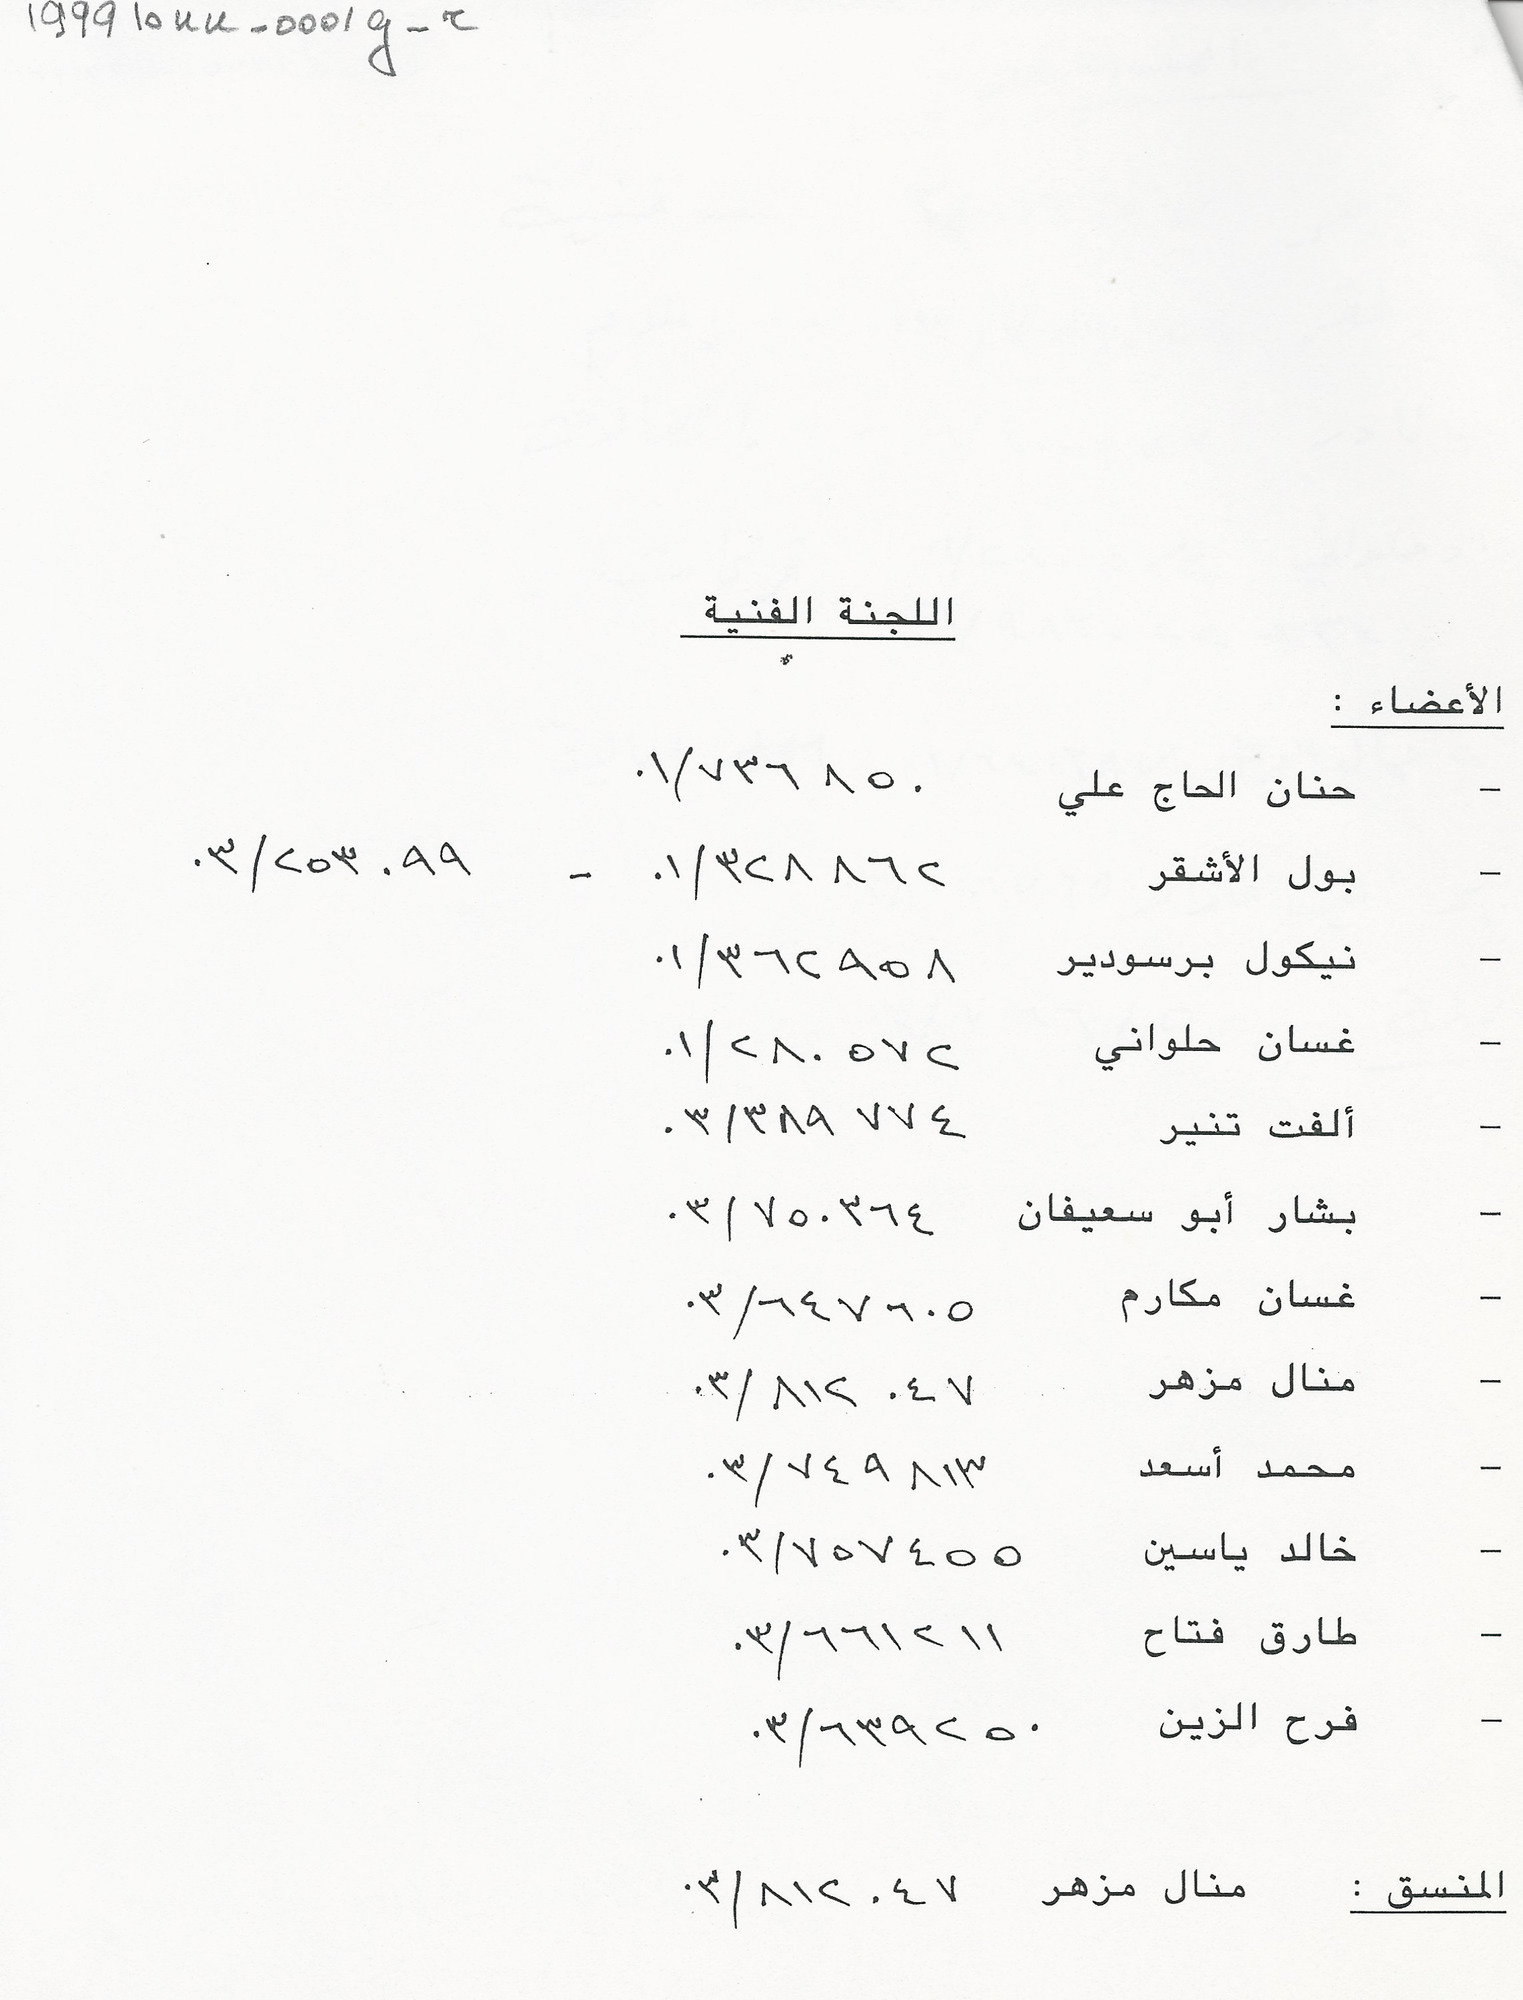 1999 10 xx - 0001g - r
اللجنة الفنية
الأعضاء :
- حنان الحاج علي ٠١/٧٣٦ ٨٥٠
- بول الأشقر ٠١/٣٢٨ ٨٦٢ - ٠٣/٢٥٣٠٩٩
- نيكول برسودير ٠١/٣٦٢ ٩٥٨
- غسان حلواني ٠١/٢٨٠ ٥٧٢
- ألفت تنير ٠٣/٣٨٩ ٧٧٤
- بشار أبو سعيفان ٠٣/٧٥٠٣٦٤
- غسان مكارم ٠٣/٦٤٧٦٠٥
- منال مزهر ٠٣/٨١٢ ٠٤٧
- محمد أسعد ٠٣/٧٤٩ ٨١٣
- خالد ياسين ٠٣/٧٥٧٤٥٥
- طارق فتاح ٠٣/٦٦١٢١١
- فرح الزين ٠٣/٦٣٩٢٥٠
المنسق : منال مزهر ٠٣/٨١٢٠٤٧